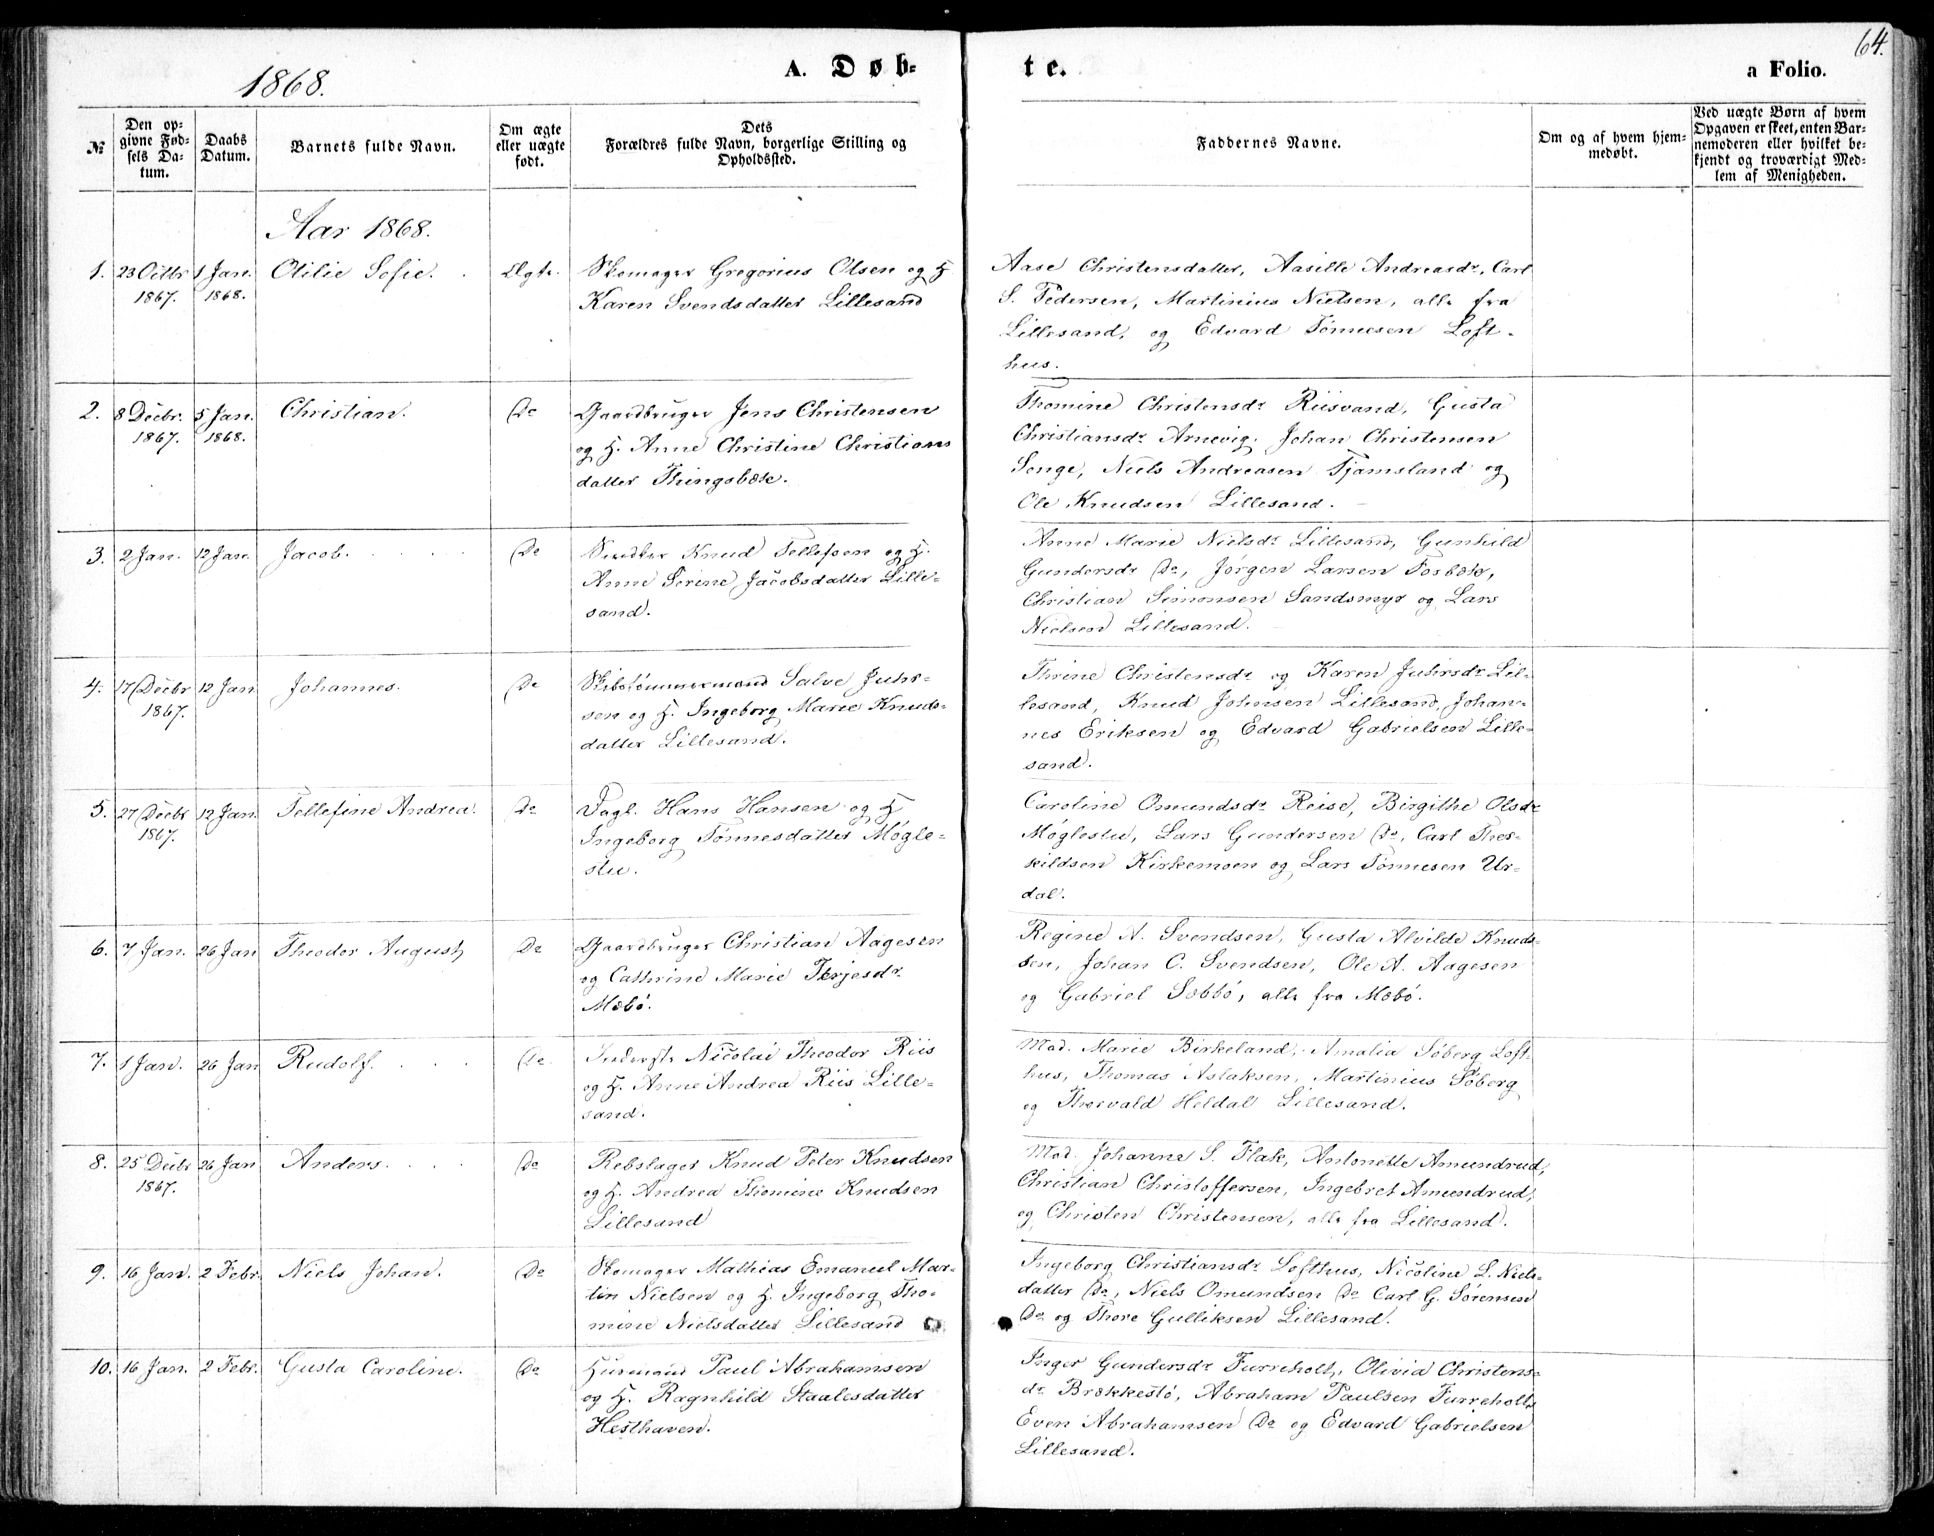 64.
1868.
A. Døb-
te.
a Folio.
№
Den op-
givne Fød-
sels Da-
tum.
Daabs
Datum.
Barnets fulde Navn.
Om ægte
eller uægte
født.
Dets
Forældres fulde Navn, borgerlige Stilling og
Opholdssted.
Faddernes Navne.
Om og af hvem hjem-
medøbt.
Ved uægte Børn af hvem
Opgaven er skeet, enten Bar-
nemoderen eller hvilket be-
kjendt og troværdigt Med-
lem af Menigheden.
Aar 1868.
1. 23 Octbr 1867. 1 Jan. 1868. Otilie Sofie. Ægte.
Skomager Gregorius Olsen og H.
Karen Svendsdatter Lillesand
Aase Christensdatter, Aasille Andreasdr, Carl
S. Pedersen, Martinius Nielsen, alle fra
Lillesand, og Edvard Tønnesen Loft-
hus.
2. 8 Decbr. 1867. 5 Jan. 1868. Christian. Do
Gaardbruger Jens Christensen
og H. Anne Christine Christians
datter Tingsbæk.
Thomine Christensdr Riisvand, Gusta
Christiansdr Arnevig. Johan Christensen
Senge, Niels Andreasen Tjamsland og
Ole Knudsen Lillesand.
3. 2 Jan. 12 Jan. Jacob. Do
Snedker Knud Tellefsen og H.
Anne Serine Jacobsdatter Lille-
sand.
Anne Marie Nielsdr Lillesand, Gunhild
Gundersdr Do, Jørgen Larsen Fosbæk,
Christian Simonsen Sandsmyr og Lars
Nielsen Lillesand.
4. 17 Decbr 1867. 12 Jan Johannes. Do
Skibstømmermand Salve Juhr-
sen og H. Ingeborg Marie Knuds-
datter Lillesand.
Thrine Christensdr og Karen Juhrsdr Lil-
lesand, Knud Johnsen Lillesand, Johan-
nes Eriksen og Edvard Gabrielsen Lille-
sand.
5. 27 Decbr 1867. 12 Jan. Tellefine Andrea. Do
Dagl. Hans Hansen og H
Ingeborg Tønnesdatter Møgle-
stu.
Caroline Omundsdr Reise, Birgithe Olsdr
Møglestu, Lars Gundersen Do, Carl Ther-
kildsen Kirkemoen og Lars Tønnesen Ur-
dal.
6. 7 Jan. 26 Jan Theodor August Do
Gaardbruger Christian Aagesen
og Cathrine Marie Terjesdr.
Mæbø.
Regine A. Svendsen, Gusta Alvilde Knud-
sen, Johan C. Svendsen, Ole A. Aagesen
og Gabriel Sæbbø, alle fra Mæbø.
7. 1 Jan. 26 Jan Rudolf. Do
Nicolai Theodor Riis
og H. Anne Andrea Riis Lille-
sand.
Mad. Marie Birkeland, Amalia Søberg Loft-
hus, Thomas Aslaksen, Martinius Søberg
og Thorvald Heldal Lillesand.
8. 25 Decbr 1867. 26 Jan Anders. Do
Rebslager Knud Peter Knudsen
og H. Andrea Thomine Knudsen
Lillesand
Mad. Johanne S. Flak, Antonette Amundrud,
Christian Christoffersen, Ingebret Amundrud,
og Christen Christensen, alle fra Lillesand.
9. 16 Jan. 2 Febr. Niels Johan. Do
Skomager Mathias Emanuel Mar-
tin Nielsen og H. Ingeborg Tho-
mine Nielsdatter Lillesand
Ingeborg Christiansdr Lofthus, Nicoline L. Niels-
datter Do, Niels Omundsen Do Carl G. Sørensen
Do og Thore Gulliksen Lillesand.
10. 16 Jan. 2 Febr. Gusta Caroline. Do
Huusmand Paul Abrahamsen
og H. Ragnhild Staalesdatter
Hesthaven.
Inger Gundersdr Furreholt, Olivia Christens-
dr Brækkestø, Abraham Paulsen Furreholt,
Even Abrahamsen Do og Edvard Gabrielsen
Lillesand.